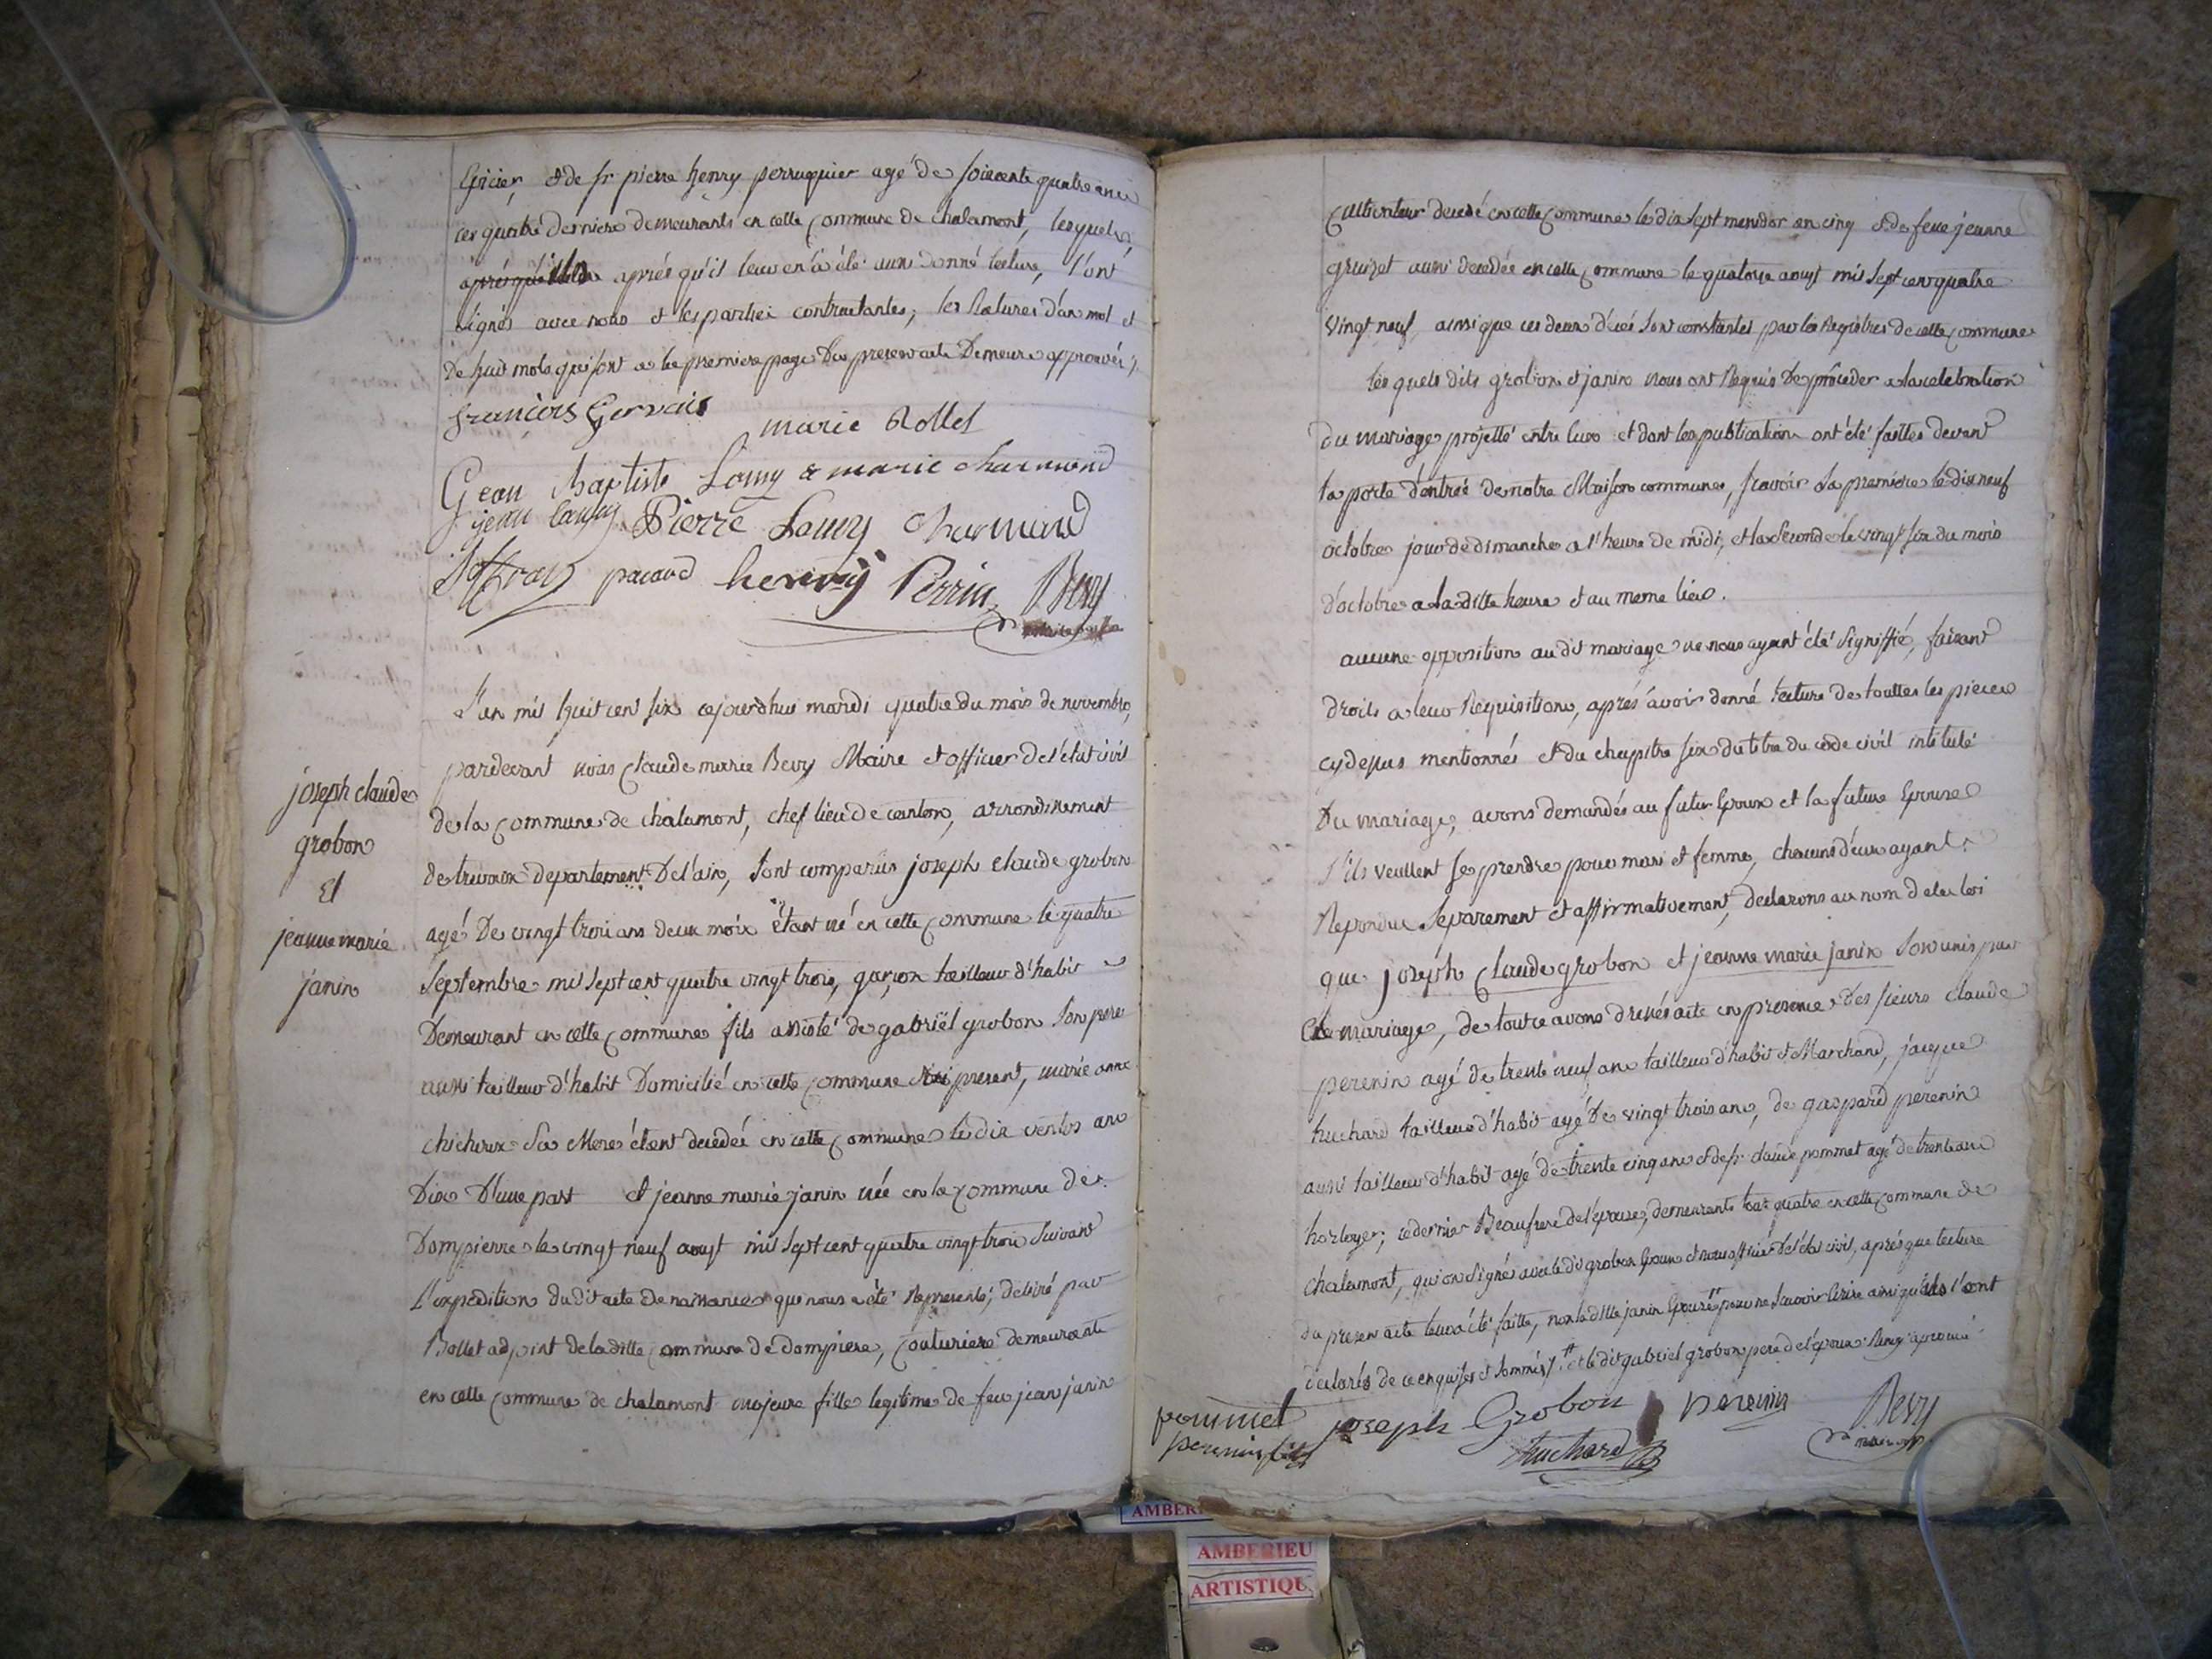 Epicier, et de sr pierre henry perruquier agé de soixante quatre ans
ces quatre derniers demeurants en cette commune de chalamont, lesquels,
après qu'il leur en a été aussi donné lecture, l'ont
signés avec nous et les parties contractantes; les Ratures d'un mot et
De huit mots qui sont a la premiere page Du present acte Demeure approuvés
françois Gervais
marie Rollet
Gean Baptiste Lamy & marie charmand
jean lamy Pierre Lamy charmand
pacaud henry Perrin Bevy
L'an mil huit cent six cejourdhui mardi quatre du mois de novembre,
pardevant nous Claude marie Bevy Maire et officier de l'état civil
de la commune de chalamont, chef lieu de canton, arrondissement
de trevoux departement De l'ain, sont comparus joseph claude grobon
agé De vingt trois ans deux mois étant né en cette commune le quatre
septembre mil sept cent quatre vingt trois, garçon tailleur d'habit
Demeurant en cette commune fils assisté de gabriël grobon son pere
aussi tailleur d'habit Domicilié en cette commune ici present, marie anne
chicheux sa Mere étant decedée en cette commune le dix ventos an
Dix D'une part et jeanne marie janin née en la commune de
Dompierre le vingt neuf aoust mil sept cent quatre vingt trois suivant
L'expedition dudit acte de naissance que nous a été representé, delivré par
Bollet adjoint de laditte commune de dompiere, couturiere demeurante
en cette commune de chalamont majeure fille legitime de feu jean janin
joseph claude
grobon
Et
jeanne marie
janin
Cultivateur decedé en cette commune le dix sept messidor an cinq et de feue jeanne
gruizet aussi decedée en cette commune le quatorze aoust mil sept cent quatre
vingt neuf, ainsi que ces deux décés sont constantés par les Registres de cette commune
les quels dits grobon et janin nous ont Requis De procéder a la celebration
du mariage projetté entre eux et dont les publications ont été faittes devant
la porte d'entrée de notre Maison commune, sçavoir La premiere le dix neuf
octobre jour de dimanche a l'heure de midi, et la seconde le vingt six du mois
d'octobre a la ditte heure et au meme lieu.
aucune opposition au dit mariage ne nous ayant été signiffié, faisant
droits a leur Requisition, aprés avoir donné lecture de touttes les pieces
cy dessus mentionnés et du chapitre six du titre du code civil intitulé
Du mariage, avons demandés au futur Epoux et la future Epouse
s'ils veullent se prendre pour mari et femme, chacuns d'eux ayant
Repondu separement et affirmativement, declarons au nom de la loi
que joseph Claude grobon et jeanne marie janin sont unis par
Le mariage, de tout ce avons dressés acte en presence Des sieurs claude
perenin agé de trente neuf ans tailleur d'habit et Marchand, jacque
huchard tailleur d'habit agé De vingt trois ans, de gaspard perenin
aussi tailleur d'habit agé de trente cinq ans et de sr claude pommet agé de trente ans
horloger; ce dernier Beaufrere de l'épouse, demeurants tous quatre en cette commune de
chalamont, qui on signés avec le dit grobon Epoux et nous officié De l'état civil, aprés que lecture
du present acte leur a été faitte, non la ditte janin Epouse # pour ne sçavoir Ecrire ainsi qu'ils l'ont
declarés de ce enquises et sommés /. # et le dit gabriel grobon pere de l'époux Renvoy aprouvé
pommet joseph Grobon perenin Bevy
perenin fils huchard maire
AMBERIEU
ARTISTIQU